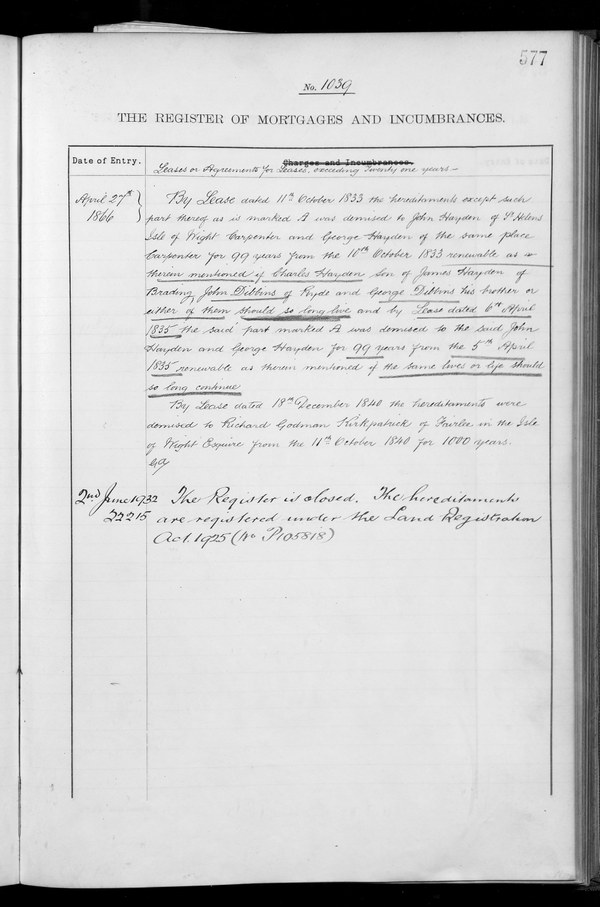 577
No. 1039
THE REGISTER OF MORTGAGES AND INCUMBRANCES.
Date of Entry.
Charges and Incumbrances.
Leases or Agreements for Leases, exceeding Twenty one years —
April 27th
1866
By Lease dated 11th October 1833 the hereditaments except such
part thereof as is marked A was demised to John Hayden of St Helens
Isle of Wight Carpenter and George Hayden of the same place
Carpenter for 99 years from the 10th October 1833 renewable as
therein mentioned if Charles Hayden son of James Hayden of
Brading John Dibbins of Ryde and George Dibbins his brother or
either of them should so long live and by Lease dated 6th April
1835 the said part marked A was demised to the said John
Hayden and George Hayden for 99 years from the 5th April
1835 renewable as therein mentioned if the same lives or life should
so long continue
By Lease dated 18th December 1840 the hereditaments were
demised to Richard Godman Kirkpatrick of Fairlee in the Isle
of Wight Esquire from the 11th October 1840 for 1000 years.
2nd June 1932
22215
The Register is closed. The hereditaments
are registered under the Land Registration
Act. 1925 (No P105818)